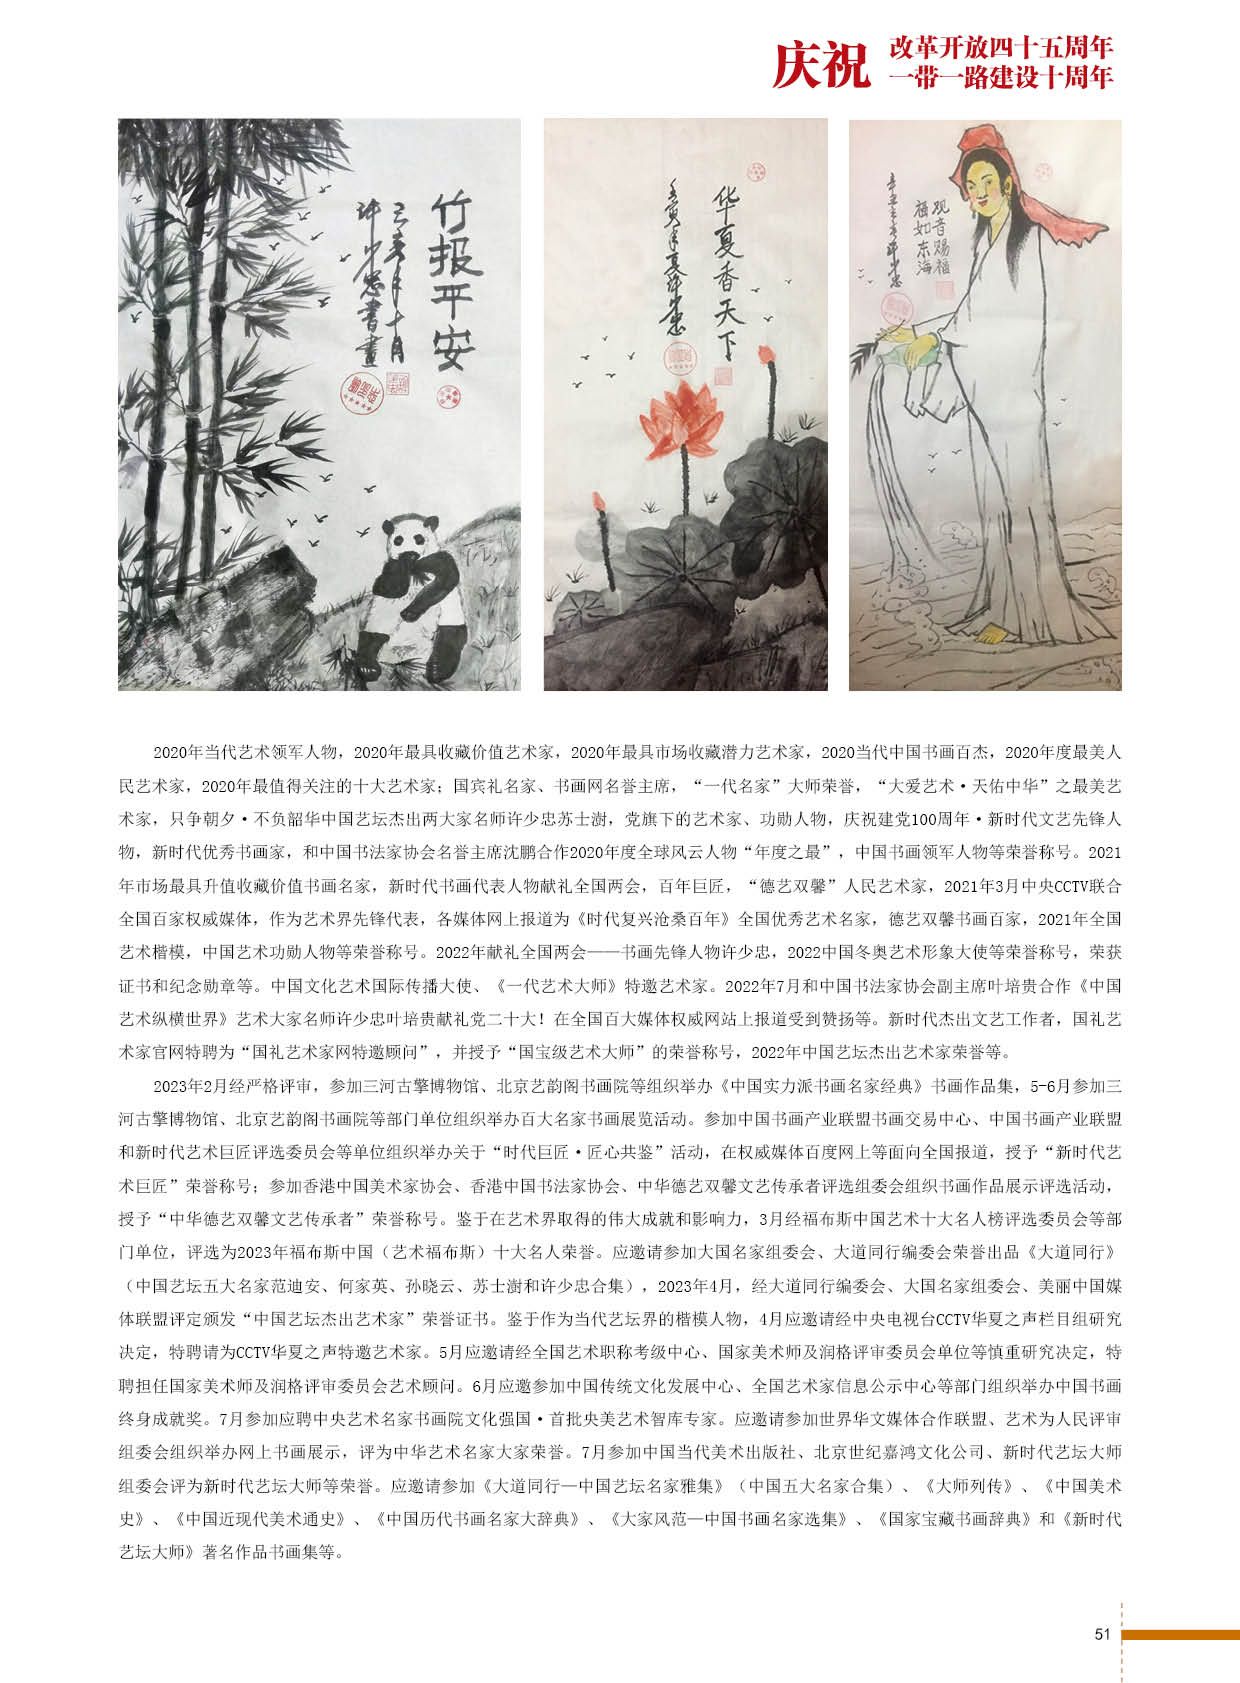 庆祝
改革开放四十五周年
一带一路建设十周年
竹报平安
己亥年十月
许少忠书画
华夏香天下
壬寅年夏许少忠
观音赐福
福如东海
2020年当代艺术领军人物，2020年最具收藏价值艺术家，2020年最具市场收藏潜力艺术家，2020当代中国书画百杰，2020年度最美人
民艺术家，2020年最值得关注的十大艺术家；国宾礼名家、书画网名誉主席，“一代名家”大师荣誉，“大爱艺术·天佑中华”之最美艺
术家，只争朝夕·不负韶华中国艺坛杰出两大家名师许少忠苏士澍，党旗下的艺术家、功勋人物，庆祝建党100周年·新时代文艺先锋人
物，新时代优秀书画家，和中国书法家协会名誉主席沈鹏合作2020年度全球风云人物“年度之最”，中国书画领军人物等荣誉称号。2021
年市场最具升值收藏价值书画名家，新时代书画代表人物献礼全国两会，百年巨匠，“德艺双馨”人民艺术家，2021年3月中央CCTV联合
全国百家权威媒体，作为艺术界先锋代表，各媒体网上报道为《时代复兴沧桑百年》全国优秀艺术名家，德艺双馨书画百家，2021年全国
艺术楷模，中国艺术功勋人物等荣誉称号。2022年献礼全国两会——书画先锋人物许少忠，2022中国冬奥艺术形象大使等荣誉称号，荣获
证书和纪念勋章等。中国文化艺术国际传播大使、《一代艺术大师》特邀艺术家。2022年7月和中国书法家协会副主席叶培贵合作《中国
艺术纵横世界》艺术大家名师许少忠叶培贵献礼党二十大！在全国百大媒体权威网站上报道受到赞扬等。新时代杰出文艺工作者，国礼艺
术家官网特聘为“国礼艺术家网特邀顾问”，并授予“国宝级艺术大师”的荣誉称号，2022年中国艺坛杰出艺术家荣誉等。
2023年2月经严格评审，参加三河古擎博物馆、北京艺韵阁书画院等组织举办《中国实力派书画名家经典》书画作品集，5-6月参加三
河古擎博物馆、北京艺韵阁书画院等部门单位组织举办百大名家书画展览活动。参加中国书画产业联盟书画交易中心、中国书画产业联盟
和新时代艺术巨匠评选委员会等单位组织举办关于“时代巨匠·匠心共鉴”活动，在权威媒体百度网上等面向全国报道，授予“新时代艺
术巨匠”荣誉称号；参加香港中国美术家协会、香港中国书法家协会、中华德艺双馨文艺传承者评选组委会组织书画作品展示评选活动，
授予“中华德艺双馨文艺传承者”荣誉称号。鉴于在艺术界取得的伟大成就和影响力，3月经福布斯中国艺术十大名人榜评选委员会等部
门单位，评选为2023年福布斯中国（艺术福布斯）十大名人荣誉。应邀请参加大国名家组委会、大道同行编委会荣誉出品《大道同行》
（中国艺坛五大名家范迪安、何家英、孙晓云、苏士澍和许少忠合集），2023年4月，经大道同行编委会、大国名家组委会、美丽中国媒
体联盟评定颁发“中国艺坛杰出艺术家”荣誉证书。鉴于作为当代艺坛界的楷模人物，4月应邀请经中央电视台CCTV华夏之声栏目组研究
决定，特聘请为CCTV华夏之声特邀艺术家。5月应邀请经全国艺术职称考级中心、国家美术师及润格评审委员会单位等慎重研究决定，特
聘担任国家美术师及润格评审委员会艺术顾问。6月应邀参加中国传统文化发展中心、全国艺术家信息公示中心等部门组织举办中国书画
终身成就奖。7月参加应聘中央艺术名家书画院文化强国·首批央美艺术智库专家。应邀请参加世界华文媒体合作联盟、艺术为人民评审
组委会组织举办网上书画展示，评为中华艺术名家大家荣誉。7月参加中国当代美术出版社、北京世纪嘉鸿文化公司、新时代艺坛大师
组委会评为新时代艺坛大师等荣誉。应邀请参加《大道同行—中国艺坛名家雅集》（中国五大名家合集）、《大师列传》、《中国美术
史》、《中国近现代美术通史》、《中国历代书画名家大辞典》、《大家风范—中国书画名家选集》、《国家宝藏书画辞典》和《新时代
艺坛大师》著名作品书画集等。
51